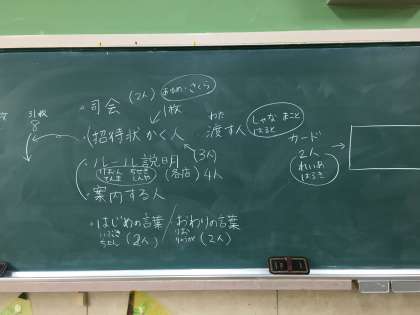 ・司会 (2人) あゆめ・さくら
1枚
・招待状かく人
わた
渡す人 しゃな まこと
はると
引枚
8
3人
・ルール説明
(各店) 4人
・案内する人
カード
2人
れいあ
はるき
・はじめの言葉 / おわりの言葉
(2人)
りお
りゅうが (2人)